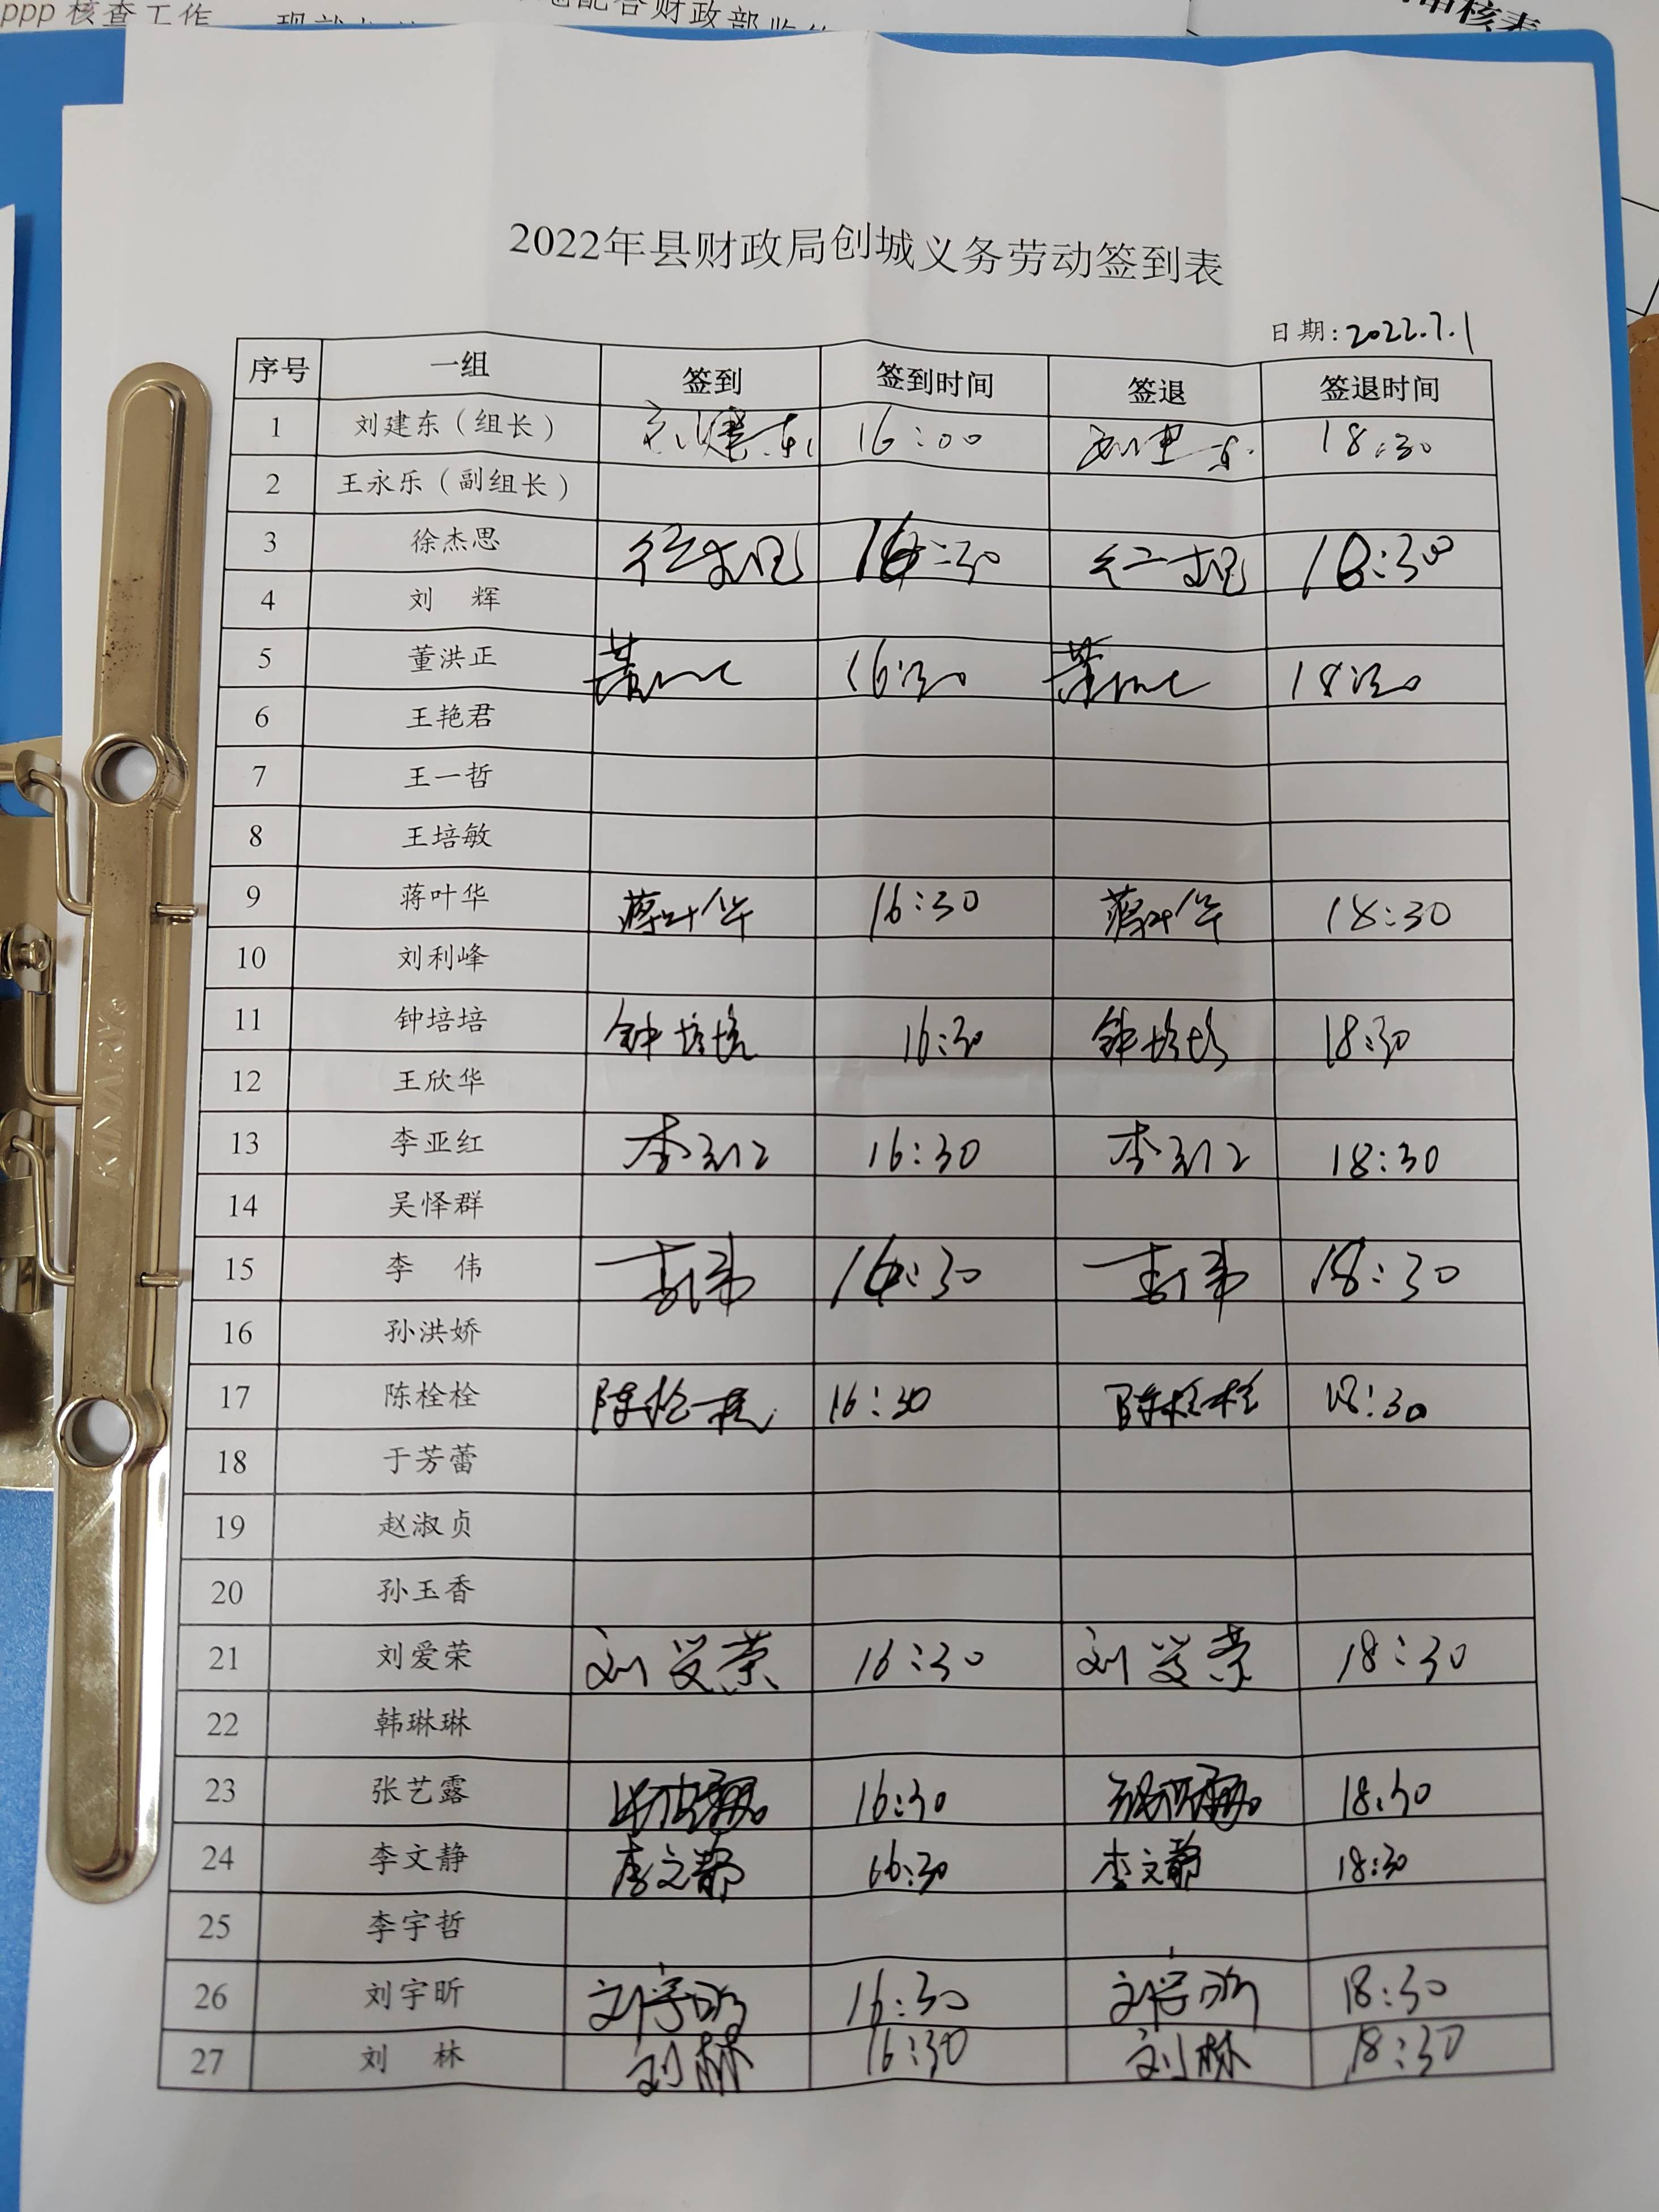 ppp核查工作
配合财政部监
审核表
2022年县财政局创城义务劳动签到表
日期:2022.7.1
序号 一组 签到 签到时间 签退 签退时间
1 刘建东（组长） 刘建东 16:00 刘建东 18:30
2 王永乐（副组长）
3 徐杰思 徐杰思 16:30 徐杰思 18:30
4 刘 辉
5 董洪正 董洪正 16:30 董洪正 18:30
6 王艳君
7 王一哲
8 王培敏
9 蒋叶华 蒋叶华 16:30 蒋叶华 18:30
10 刘利峰
11 钟培培 钟培培 16:30 钟培培 18:30
12 王欣华
13 李亚红 李亚红 16:30 李亚红 18:30
14 吴怿群
15 李 伟 李伟 16:30 李伟 18:30
16 孙洪娇
17 陈栓栓 陈栓栓 16:30 陈栓栓 18:30
18 于芳蕾
19 赵淑贞
20 孙玉香
21 刘爱荣 刘爱荣 16:30 刘爱荣 18:30
22 韩琳琳
23 张艺露 张艺露 16:30 张艺露 18:30
24 李文静 李文静 16:30 李文静 18:30
25 李宇哲
26 刘宇昕 刘宇昕 16:30 刘宇昕 18:30
27 刘 林 刘林 16:30 刘林 18:30
KINARY